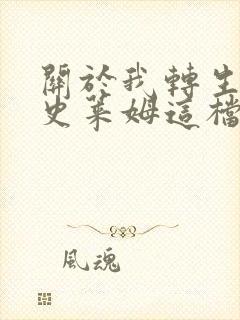 關於我轉生
史萊姆這檔
風魂